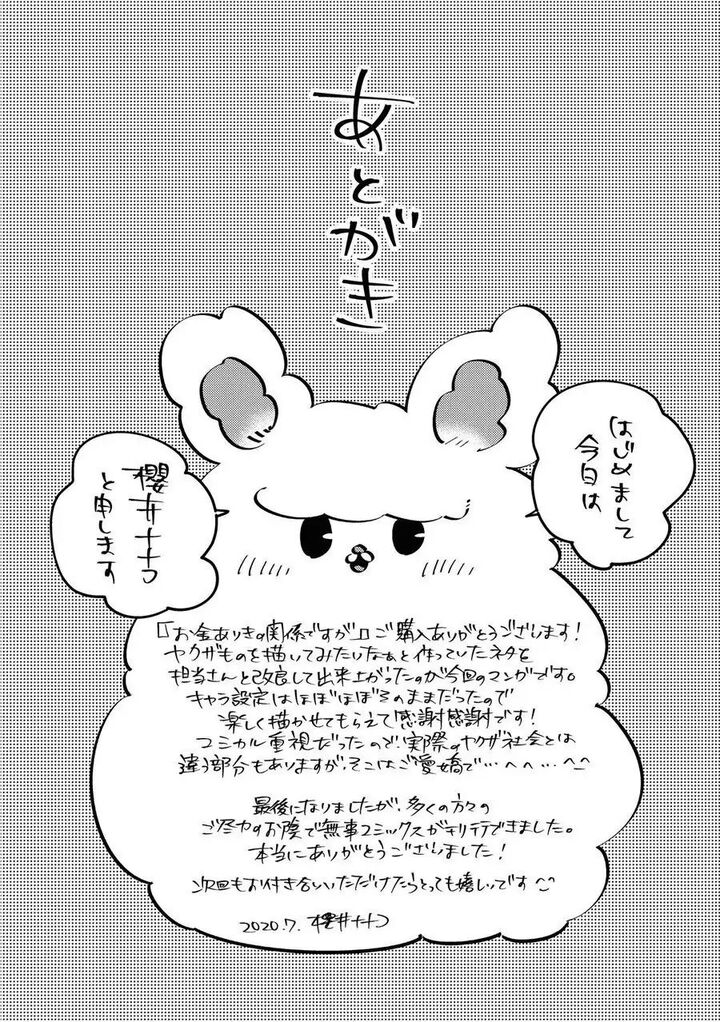 あとがき
はじめまして
今日は
櫻井ナナコ
と申します
『お金ありきの関係ですが』ご購入ありがとうございます!
ヤクザものを描いてみたいなぁと作っていたネタを
担当さんと改良して出来上がったのが今回のマンガです。
キャラ設定はほぼほぼそのままだったので
楽しく描かせてもらえて感謝感謝です!
コミカル重視だったので、実際のヤクザ社会とは
違う部分もありますが、そこはご愛嬌で…へへ…へ^^
最後になりましたが、多くの方々の
ご尽力のお陰で無事コミックスが刊行できました。
本当にありがとうございました!
次回もお付き合いいただけたらとっても嬉しいです
2020.7. 櫻井ナナコ